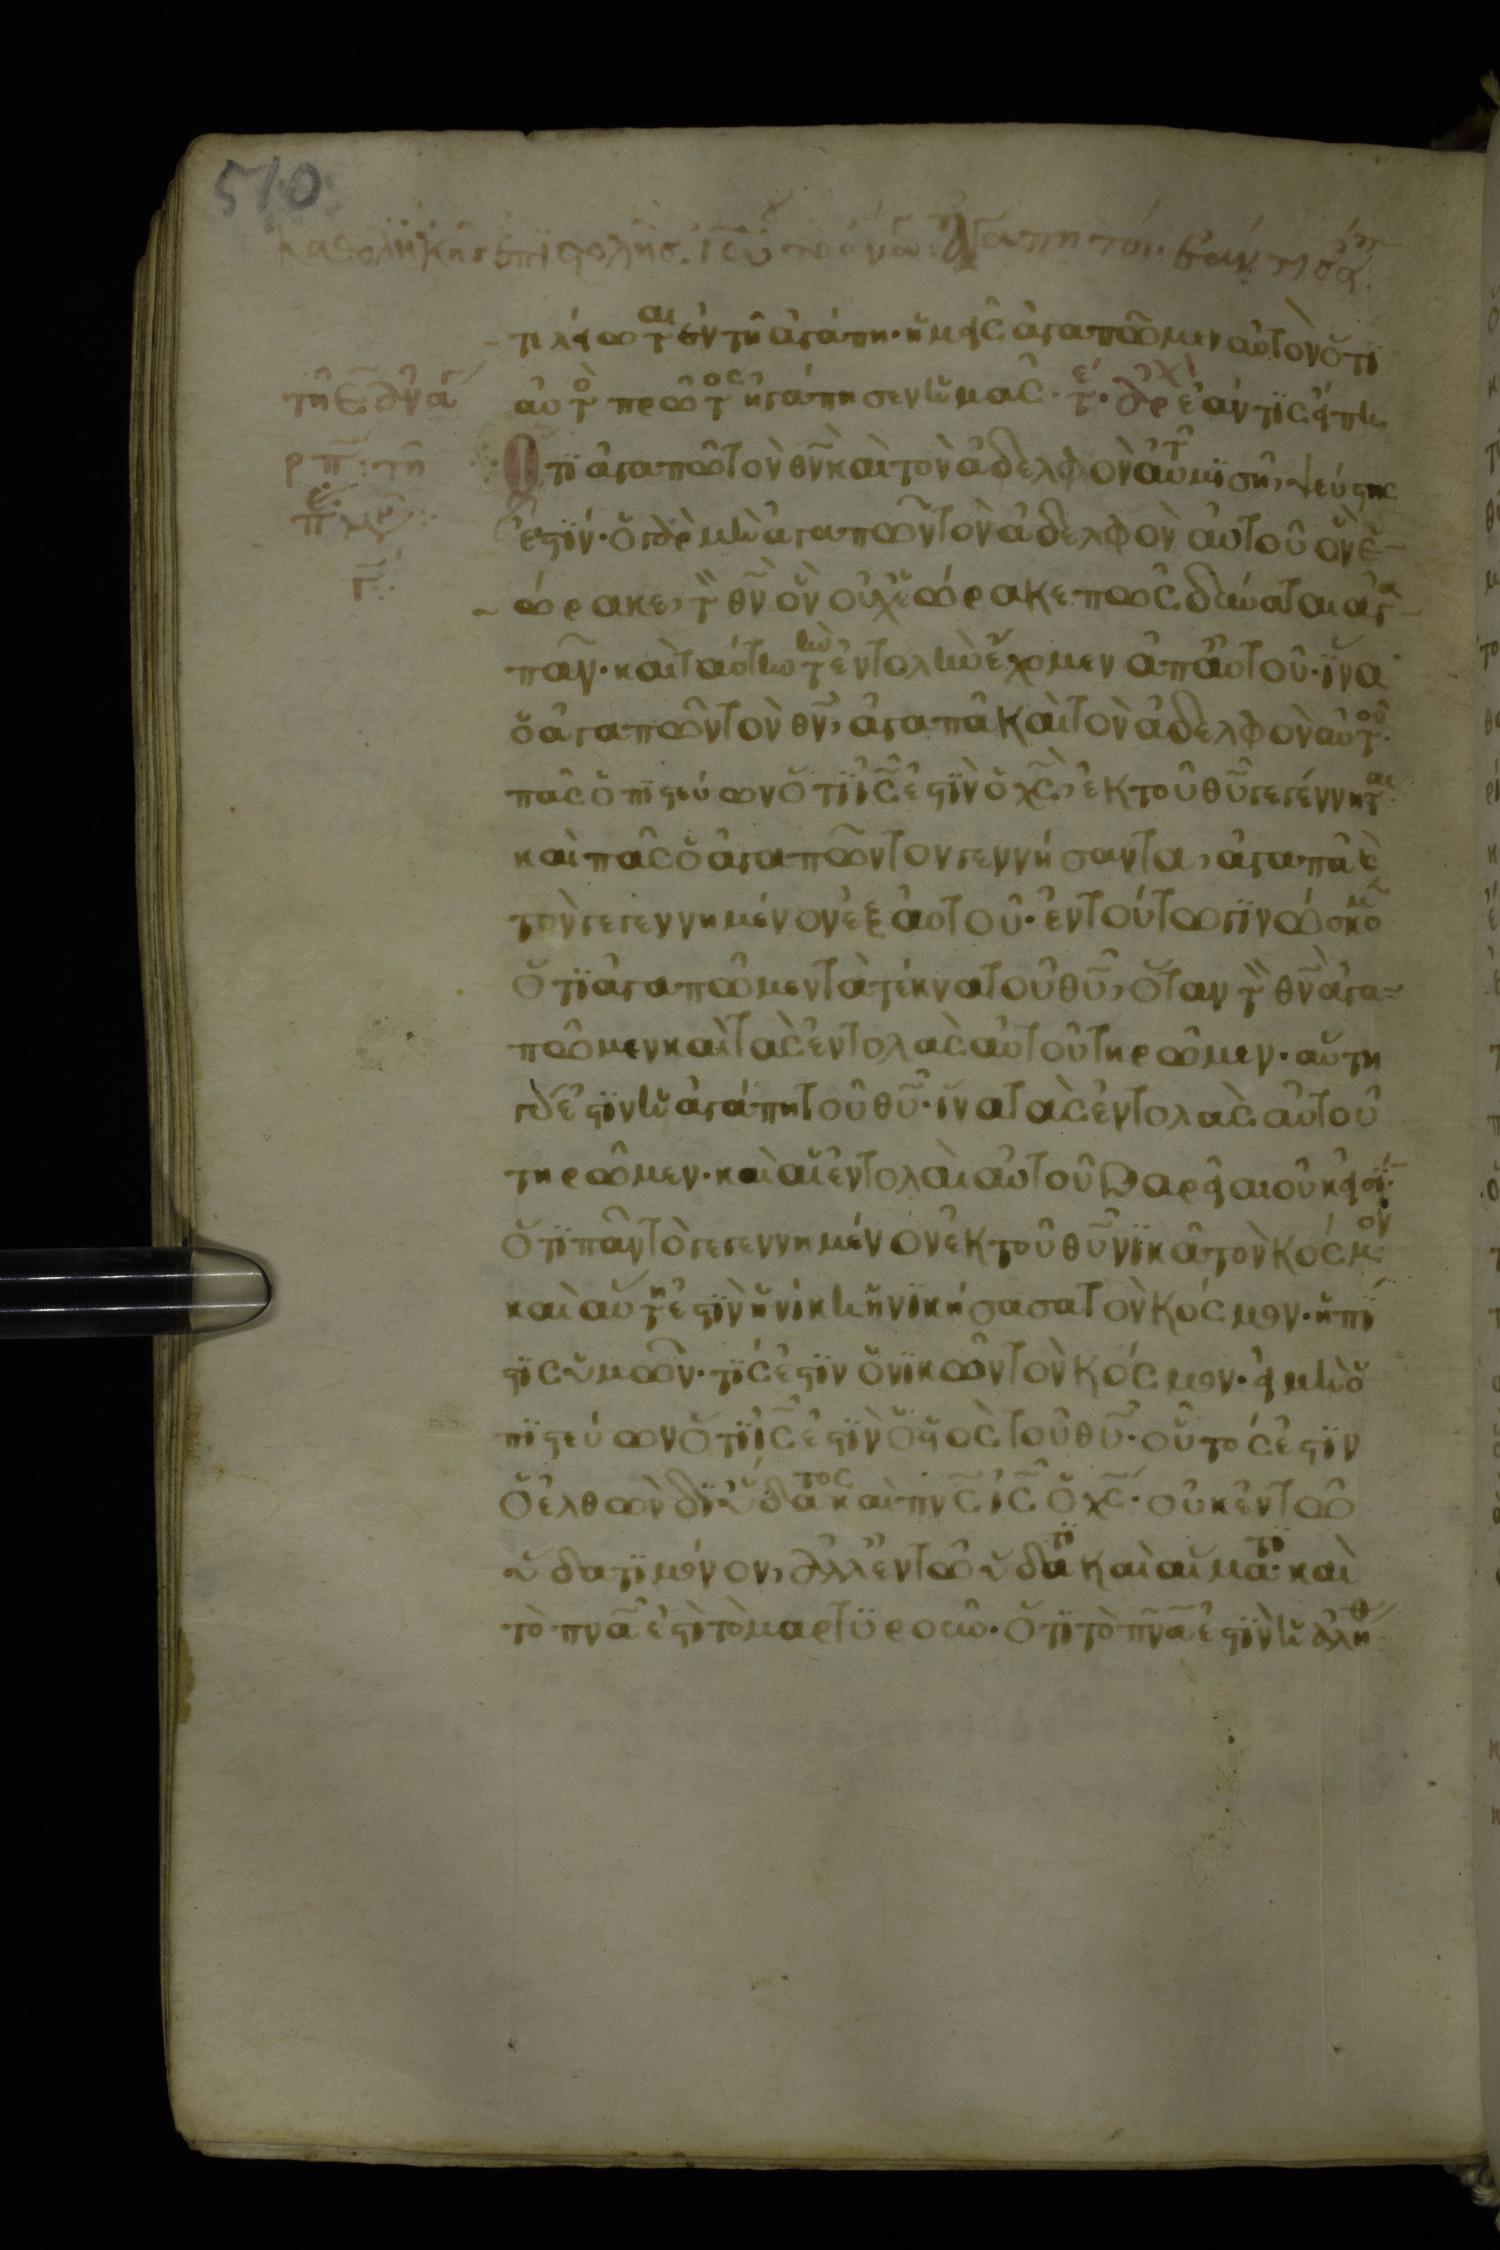 510
καθολικῆς ἐπιστολῆς ἰω
ἀγαπητοί ἐάν τις
τελείωται ἐν τῆ ἀγάπη· ἡμεῖς ἀγαπῶμεν αὐτὸν ὅτϊ
αὐτὸς πρῶτος ἠγάπησεν ἡμᾶς· τέ· ἀρχὴ ἐάν τϊς εἴπη
ὅτϊ ἀγαπῶ τὸν θν̅ καὶ τὸν ἀδελφὸν αὐτοῦ μϊσῆ, ψεύστης
ἐστϊν· ὁ γὰρ μὴ ἀγαπῶν τὸν ἀδελφὸν αὐτοῦ ὃν ἑ
ώρακε, τὸν θν̅ ὃν οὐχ ἑώρακε πῶς δύναται ἀγα
πᾶν· καὶ ταύτην τὴν ἐντολὴν ἔχομεν ἀπ αὐτοῦ· ἵνα
ὁ ἀγαπῶν τὸν θν̅, ἀγαπᾶ καὶ τὸν ἀδελφὸν αὐτοῦ·
πᾶς ὁ πϊστεύων ὅτϊ ις̅ ἐστϊν ὁ χς̅, ἐκ τοῦ θυ̅ γεγέννηται·
καὶ πᾶς ὁ ἀγαπῶν τον γεννήσαντα, ἀγαπᾶ καὶ
τὸν γεγεννημένον ἐξ αὐτοῦ· ἐν τούτω γϊνώσκομεν
ὅτϊ ἀγαπῶμεν τὰ τέκνα τοῦ θυ̅, ὅταν τὸν θν̅ ἀγα
πῶμεν καὶ τὰς ἐντολὰς αὐτοῦ τηρῶμεν· αὕτη
γάρ ἐστϊν ἡ ἀγάπη τοῦ θυ̅· ἵνα τὰς ἐντολὰς αὐτοῦ
τηρῶμεν· καὶ αἱ ἐντολαὶ αὐτοῦ βαρεῖαι οὐκ εἰσϊν·
ὅτϊ πᾶν τὸ γεγεννημένον ἐκ τοῦ θυ̅ νϊκᾶ τὸν κόσμον·
καὶ αὕτη ἐστϊν ἡ νίκη ἡ νϊκήσασα τὸν κόσμον· ἡ πί
στϊς ὑμῶν· τϊς ἐστϊν ὁ νϊκῶν τὸν κόσμον· εἰ μὴ ὁ
πϊστεύων ὅτϊ ις̅ ἐστϊν ὁ υἱὸς τοῦ θυ̅· οὗτός ἐστϊν
ὁ ἐλθὼν δϊ ὕδατος καὶ πνς̅ ις̅ ὁ χς̅· οὐκ ἐν τῶ
ὕδατϊ μόνον, ἀλλ ἐν τῶ ὕδατϊ καὶ αἵματϊ· καὶ
τὸ πνα̅ ἐστϊ τὸ μαρτϋροῦν· ὅτϊ τὸ πνα̅ ἐστϊν ἡ ἀλήθ